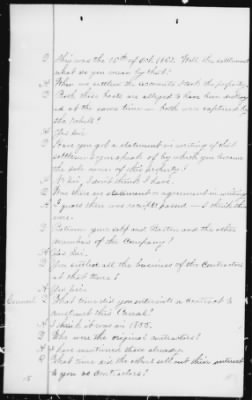 Q This was the 10th of Oct. 1862. Well, the settlement
what do you mean by that?
A When we settled the accounts I took the property.
Q Both these boats are alleged to have been destroy-
ed at the same time — both were captured by
the rebels?
A Yes sir.
Q Have you got a statement in writing of that
settlement you speak of by which you became
the sole owner of this property?
A No sir, I don't think I have.
Q Was there no statement or agreement in writing?
A I guess there was receipts passed — I think there
were.
Q Between yourself and and the other
members of the Company?
A Yes sir.
Q You settled all the business of the Contractors
at that time?
A Yes sir.
Q What time did you enter into a contract to
construct this Canal?
A I think it was in 1855.
Q Who were the original contractors?
A I have mentioned those already.
Q What time did the others sell out their interest
to you as contractors?
15